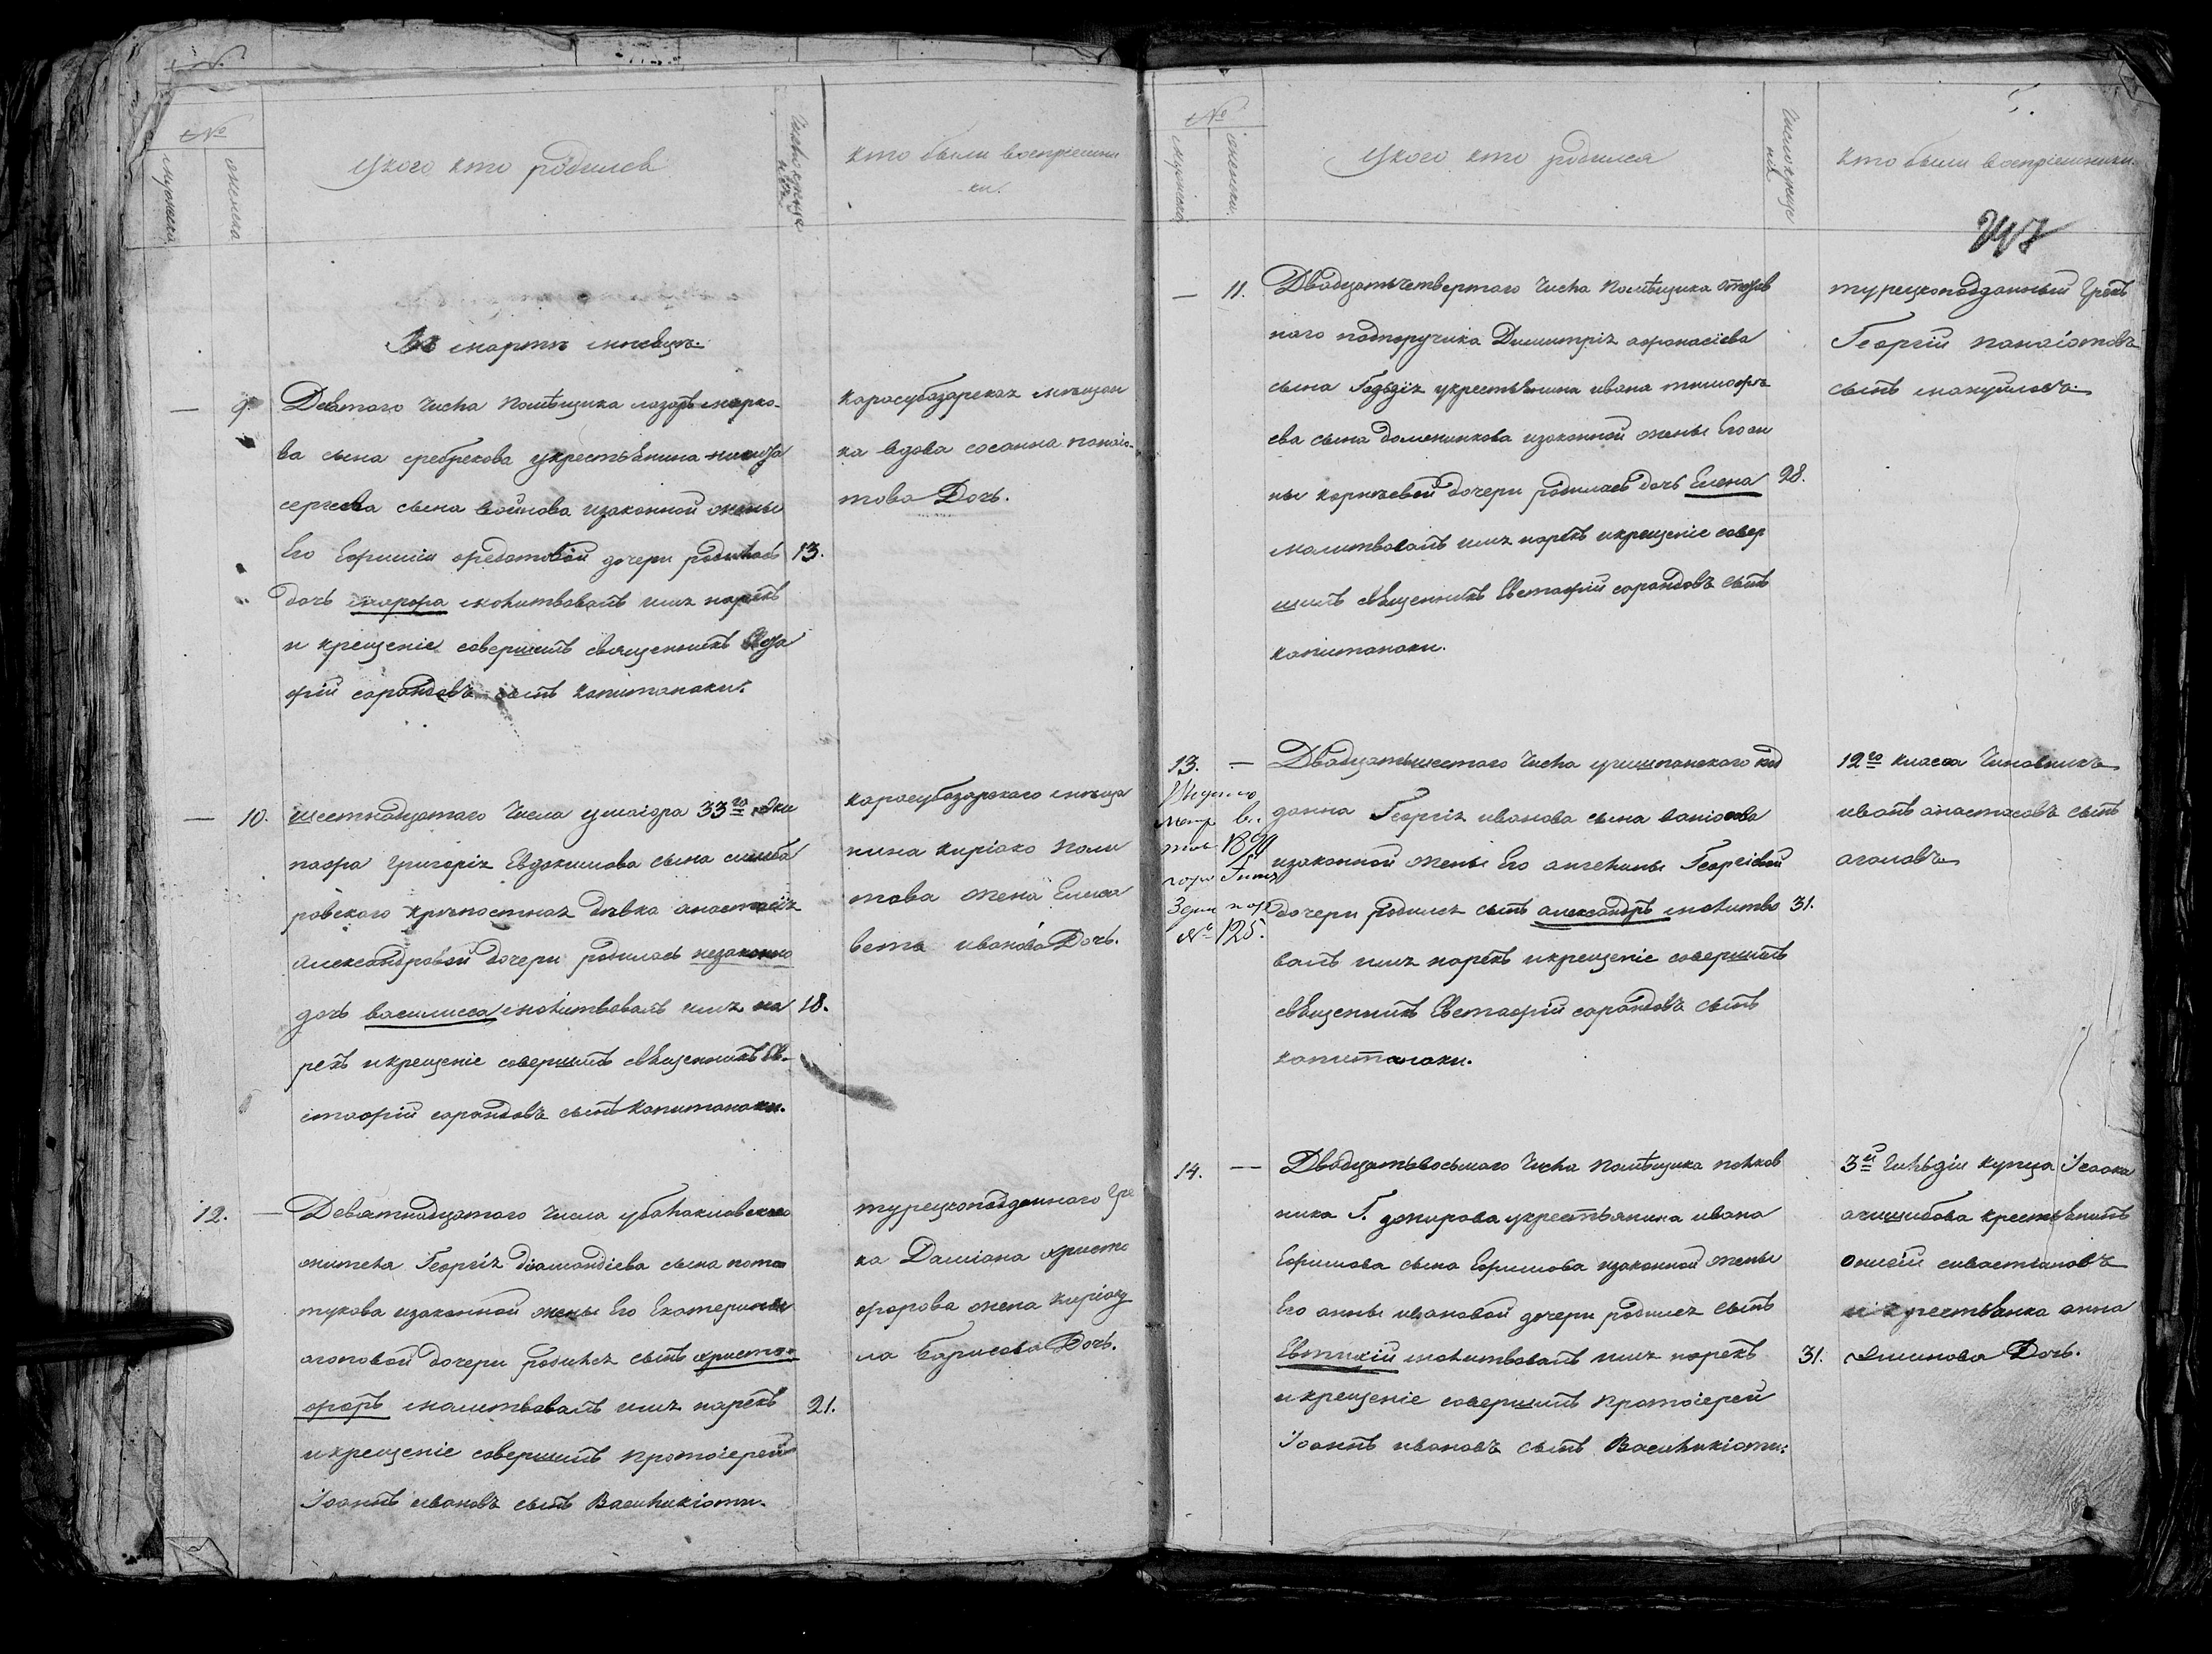 №
№
мужеска
женска
Укого кто родился
Число крещенія
кто были воспріемни
ки.
Въ мартѣ мѣсяцѣ.
— 9. Девятаго Числа Помѣщика лазаря марко-
ва сына сребрекова укрестьянина
сергеева сына войнова изаконной жены
Его Евфиміи дочери родилась 13.
дочь марфа молитвовалъ имя нарекъ
и крещеніе совершилъ священникъ Евста
фій сарандовъ сынъ капитанаки.
карасубазарская мѣщан
ка вдова сосанна панаіо-
това Дочь.
— 10. шестнадцатаго Числа умаіора 33го
Григорія Евдокимова сына
ровскаго крѣпостная дѣвка анастасія
александровой дочери родилась незаконно
дочь василисса молитвовалъ имя на 18.
рекъ икрещеніе совершилъ священникъ Ев-
стафій сарандовъ сынъ капитанаки.
карасубазарскаго мѣща
нина киріако Пали
това жена Елиса
вета иванова Дочь.
12. — Девятнадцатаго Числа убалаклавскаго
жителя Георгія діамандіева сына
изаконной жены Его Екатерины
агаповой дочери родился сынъ христо-
форъ молитвовалъ имя нарекъ 21.
икрещеніе совершилъ Протоіерей
Іоаннъ ивановъ сынъ Василикіоти.
турецкоподданнаго Гре
ка Даміана христо
форова жена киріаку
ла Барисова Дочь.
№
Мужеска
женски.
Укого кто родился
Число креще
нія
5.
кто были воспріемники.
— 11. Двадцатьчетвертаго Числа Помѣщика отстав
наго подпоручика Димитрія афанасіева
сына укрестьянина ивана тимофе
ева сына доменикова изаконной жены Его
ны корнѣевой дочери родилась дочь Елена 28.
молитвовалъ имя нарекъ икрещеніе совер
шилъ священникъ Евстафій сарандовъ сынъ
капитанаки.
турецкоподданный Грекъ
Георгій панаіотовъ
сынъ мануйловъ.
13. — Двадцатьшестаго Числа под
данна Георгія иванова сына
изаконной жены Его ангелины Георгіевой
дочери родился сынъ александръ молитво 31.
валъ имя нарекъ икрещеніе совершилъ
священникъ Евстафій сарандовъ сынъ
капитанаки.
Выдано
метр
1890
года
3 дня
№ 125.
12го класса Чиновникъ
иванъ анастасовъ сынъ
агаповъ
14. — Двадцатьвосьмаго Числа Помѣщика полков
ника Г. укрестьянина ивана
Ефимова сына Ефимова изаконной жены
Его анны ивановой дочери родился сынъ
Евтихій молитвовалъ имя нарекъ 31.
икрещеніе совершилъ Протоіерей
Іоаннъ ивановъ сынъ Василикіоти.
3й Гильдіи купца Ісаака
крестьянинъ
севастьяновъ
и крестьянка анна
Дочь.